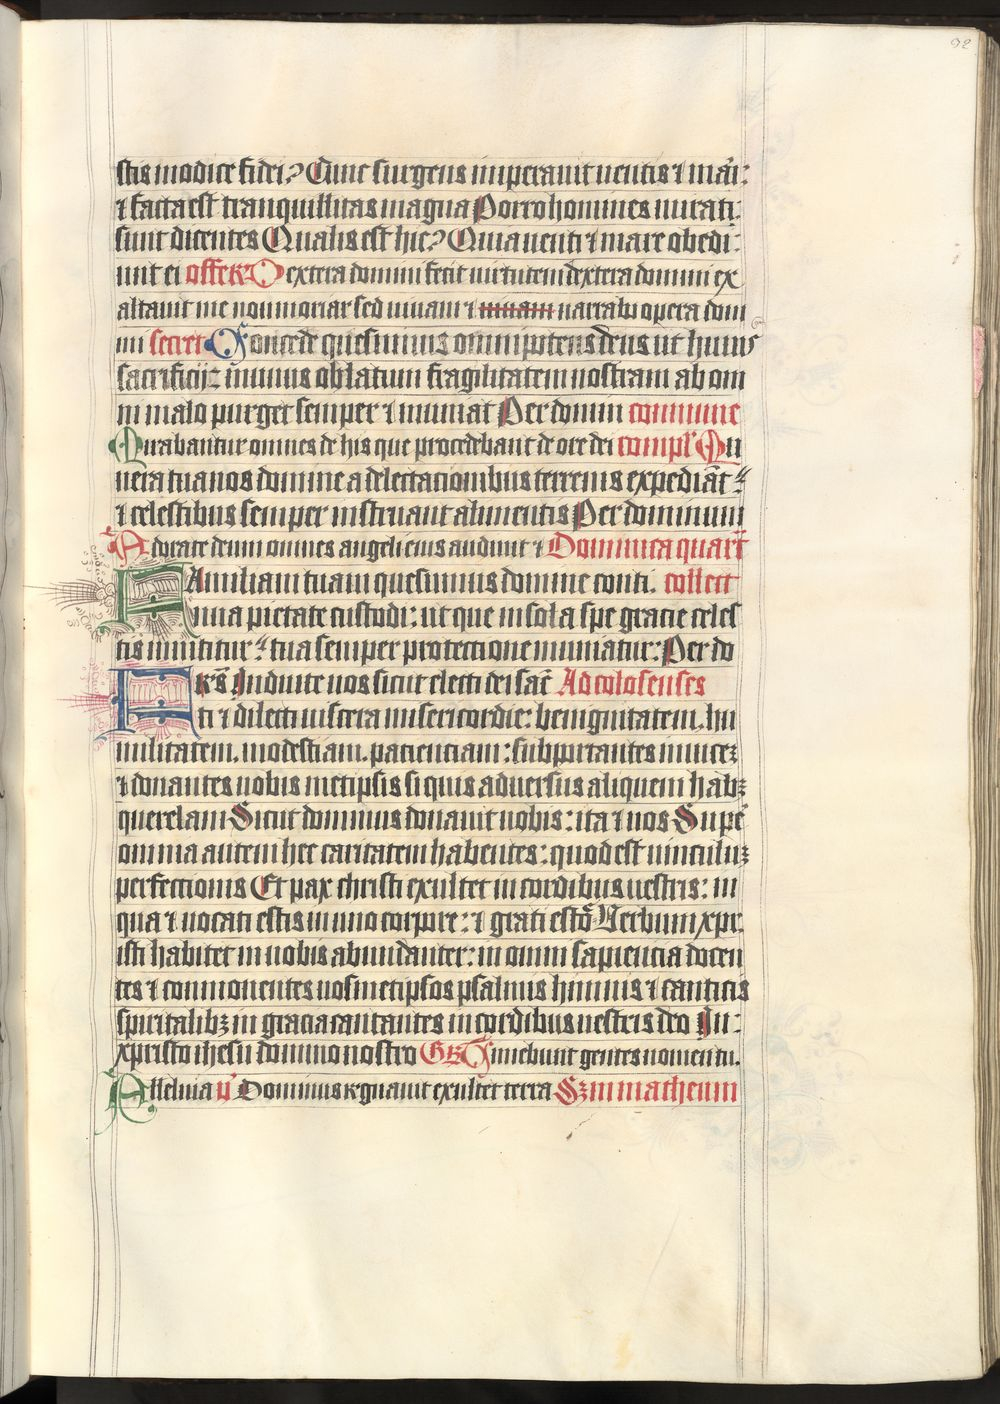 92
stis modice fidei? Tunc surgens imperauit uentis ⁊ mari:
⁊ facta est tranquillitas magna Porro homines mirati
sunt dicentes Qualis est hic? Quia uenti ⁊ mare obedi
unt ei offert Dextera domini fecit uirtutem dextera domini ex
altauit me non moriar sed uiuam ⁊ uiuam narrabo opera domi
ni secret Concede quesumus omnipotens deus ut huius
sacrificij munus oblatum fragilitatem nostram ab om
ni malo purget semper ⁊ muniat Per domin commune
Mirabantur omnes de his que procedebant de ore dei compl Mu
nera tua nos domine a delectacionibus terrenis expediāt
⁊ celestibus semper instruant alimentis Per dominum
Adorate deum omnes angeli eius audiuit ⁊ Dominica quart
Familiam tuam quesumus domine conti. collect
nua pietate custodi: ut que in sola spe gracie celes
tis innititur tua semper protectione muniatur: Per do
Frs Induite uos sicut electi dei sāc Ad colosenses
ti ⁊ dilecti uiscera misericordie: benignitatem. hu
militatem. modestiam. pacienciam: subportantes inuicēȝ
⁊ donantes uobis metipsis si quis aduersus aliquem habȝ
querelam Sicut dominus donauit uobis: ita ⁊ uos Supē
omnia autem hec caritatem habentes: quod est uinculuȝ
perfectionis Et pax christi exultet in cordibus uestris: in
qua ⁊ uocati estis in uno corpore: ⁊ grati estō Verbum xpr
isti habitet in uobis abundanter: in omni sapiencia docen
tes ⁊ commonentes uosmetipsos psalmis hymnis ⁊ canticis
spiritalibȝ in gracia cantantes in cordibus uestris deo In
xpristo ihesu domino nostro Gr Timebunt gentes nomen tu.
Alleluia v̄ Dominus regnauit exultet terra Scdm matheum